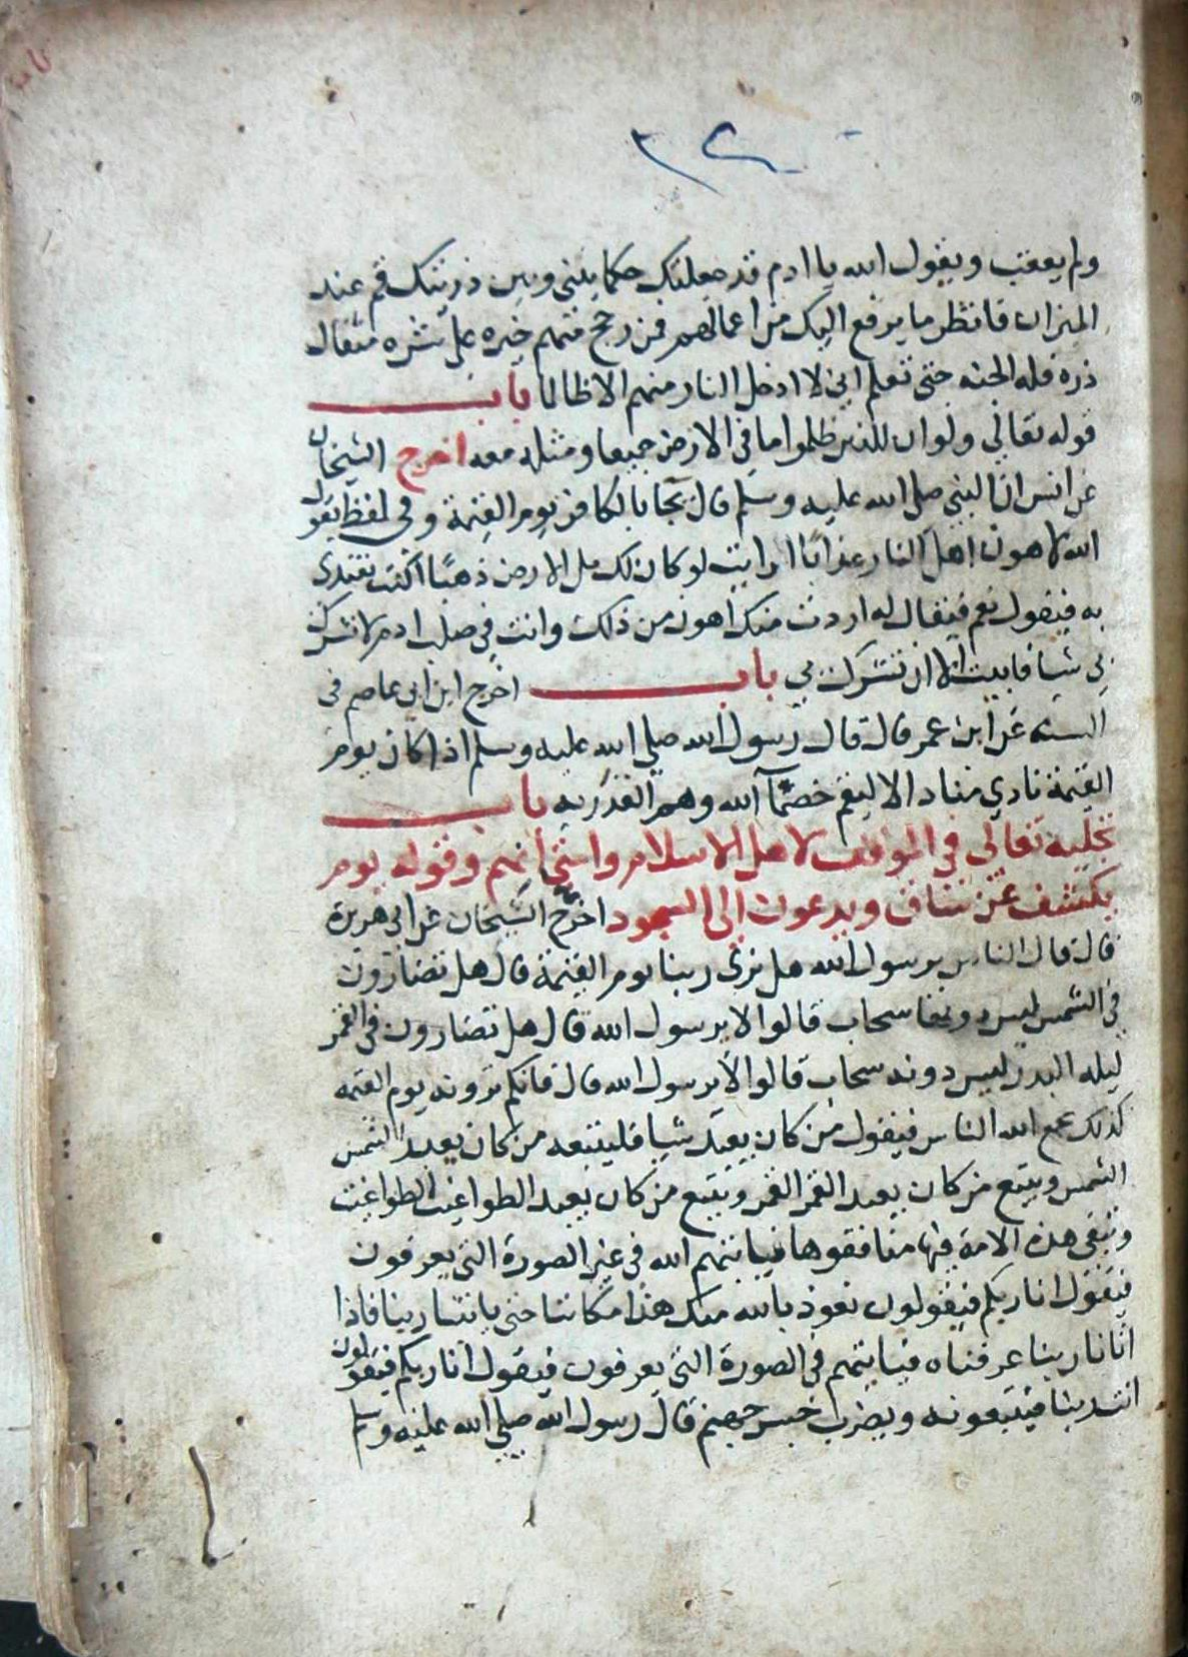 ٢٢
ولم يعقب ويقول الله يا ادم قد جعلتك حكما بيني وبين ذريتك قم عند
الميزان فانظر ما يرفع اليك من اعمالهم فمن رجح منهم خيره على شره مثقال
ذره فله الجنه حتى تعلم اني لا ادخل النار منهم الا ظالما باب
قوله تعالي ولو ان للذين ظلموا ما في الارض جميعا ومثله معه اخرج الشيخان
عن انس ان النبي صلى الله عليه وسلم قال يجا بالكافر يوم القيمة وفي لفظ يقول
الله لاهون اهل النار عذابا ارايت لو كان لك مل الارض ذهبا اكنت تفتدى
به فيقول نعم فيقال له اردت منك اهون من ذلك وانت في صلب ادم لا تشرك
بي شيا فابيت الا ان تشرك بي باب اخرج ابن ابى عاصم فى
السنه عن ابن عمر قال قال رسول الله صلي الله عليه وسلم اذا كان يوم
القيمة نادي مناد الا ليقم خصمآ الله وهم القدريه باب
تجليه تعالي في الموقف لاهل الاسلام وامتحانهم وقوله يوم
يكشف عن ساق ويدعون الى السجود اخرج الشيخان عن ابى هريرة
قال قال الناس يرسول الله هل نرى ربنا يوم القيمة قال هل تضارون
في الشمس ليس دونها سحاب قالوا لا يرسول الله قال هل تضارون فى القمر
ليله البدر ليس دونه سحاب قالوا لا يرسول الله قال فانكم ترونه يوم القيمه
كذلك يجمع الله الناس فيقول من كان يعبد شيا فليتبعه من كان يعبد الشمس
الشمس ويتبع من كان يعبد القمر القمر ويتبع من كان يعبد الطواغيت الطواغيت
وتبقى هذه الامة فيها منافقوها فياتيهم الله فى غير الصورة التى يعرفون
فيقول انا ربكم فيقولون نعوذ بالله منك هذا مكاننا حتى ياتينا ربنا فاذا
اتانا ربنا عرفناه فياتيهم في الصورة التى يعرفون فيقول انا ربكم فيقولون
انت ربنا فيتبعونه ويضرب جسر جهنم قال رسول الله صلي الله عليه وسلم